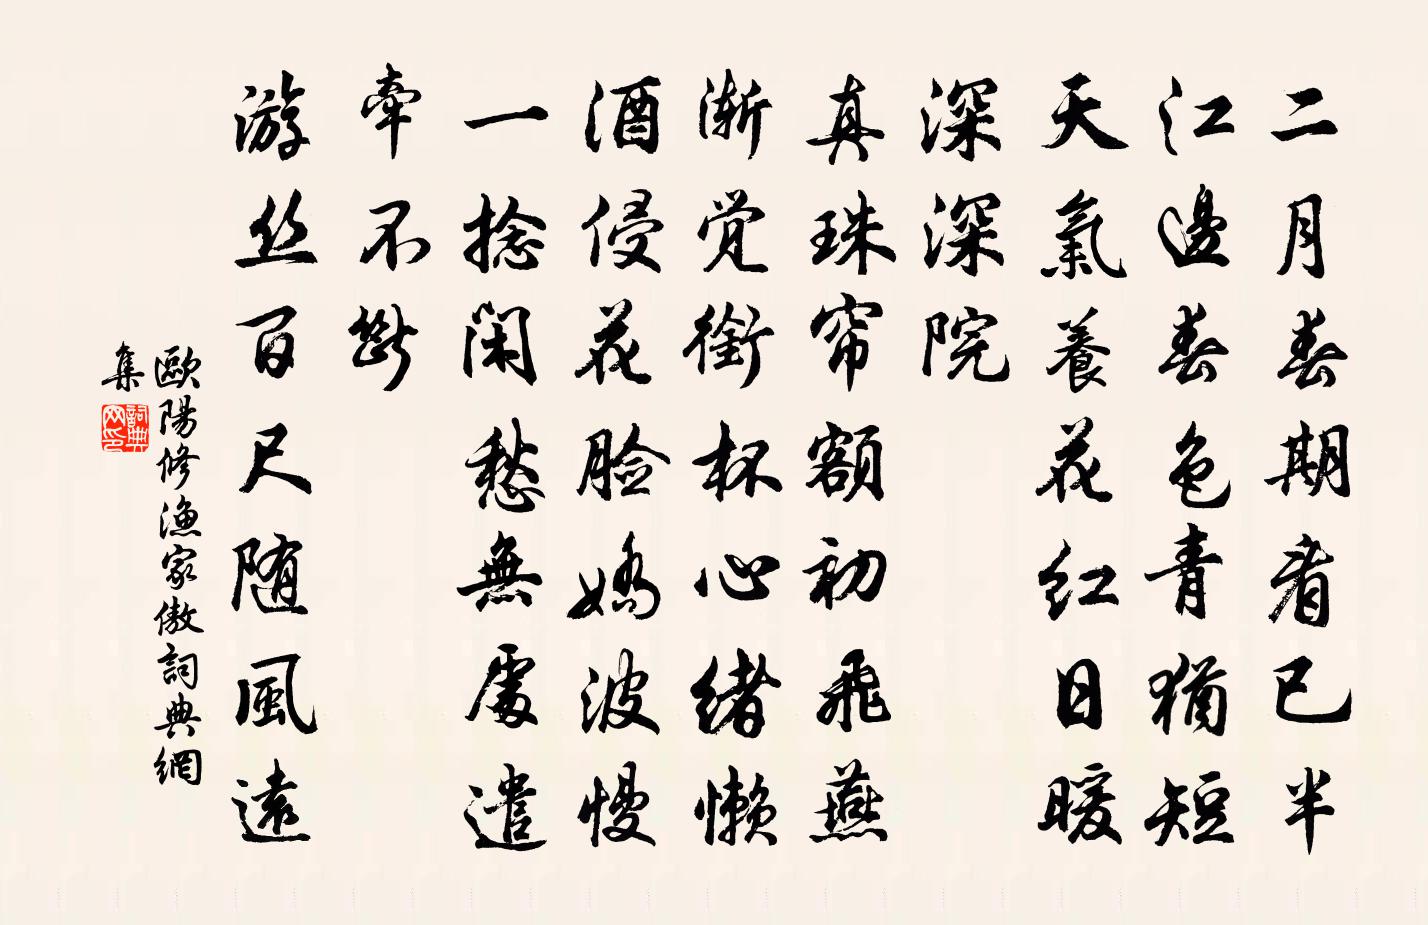 二月春期看已半
江邊春色青猶短
天氣養花紅日暖
深深院
真珠帘額初飛燕
漸覺銜杯心緒懶
酒侵花臉嬌波慢
一捻閑愁無處遣
牽不斷
游丝百尺随風遠
歐陽修漁家傲詞典網
集
詞典
网印